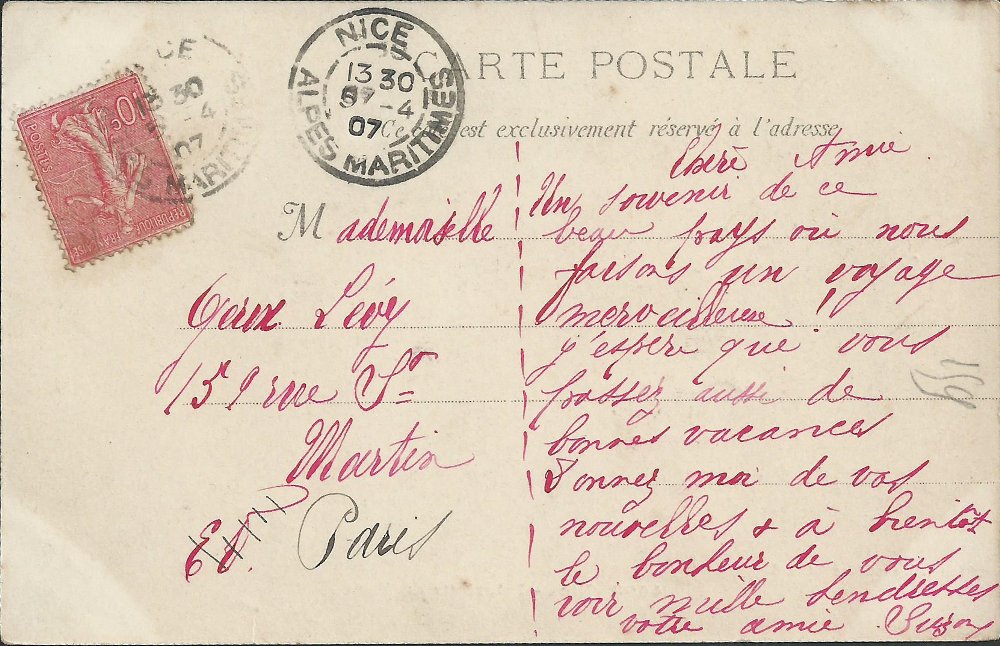 CARTE POSTALE
Ce est exclusivement réservé à l'adresse
NICE
13 30
-4
07
ALPES MARITIMES
CE
30
-4
07
MARITIMES
10c
POSTES
REPUBLIQUE FRANÇAISE
Mademoiselle
Lévy
159 rue St
Martin
E.V.
Paris
Chère Amie
Un souvenir de ce
beau pays où nous
faisons un voyage
merveilleuse!
j'espère que vous
passez aussi de
bonnes vacances
Donnez moi de vos
nouvelles & à bientôt
le bonheur de vous
voir mille tendresses
votre amie Suzon
159